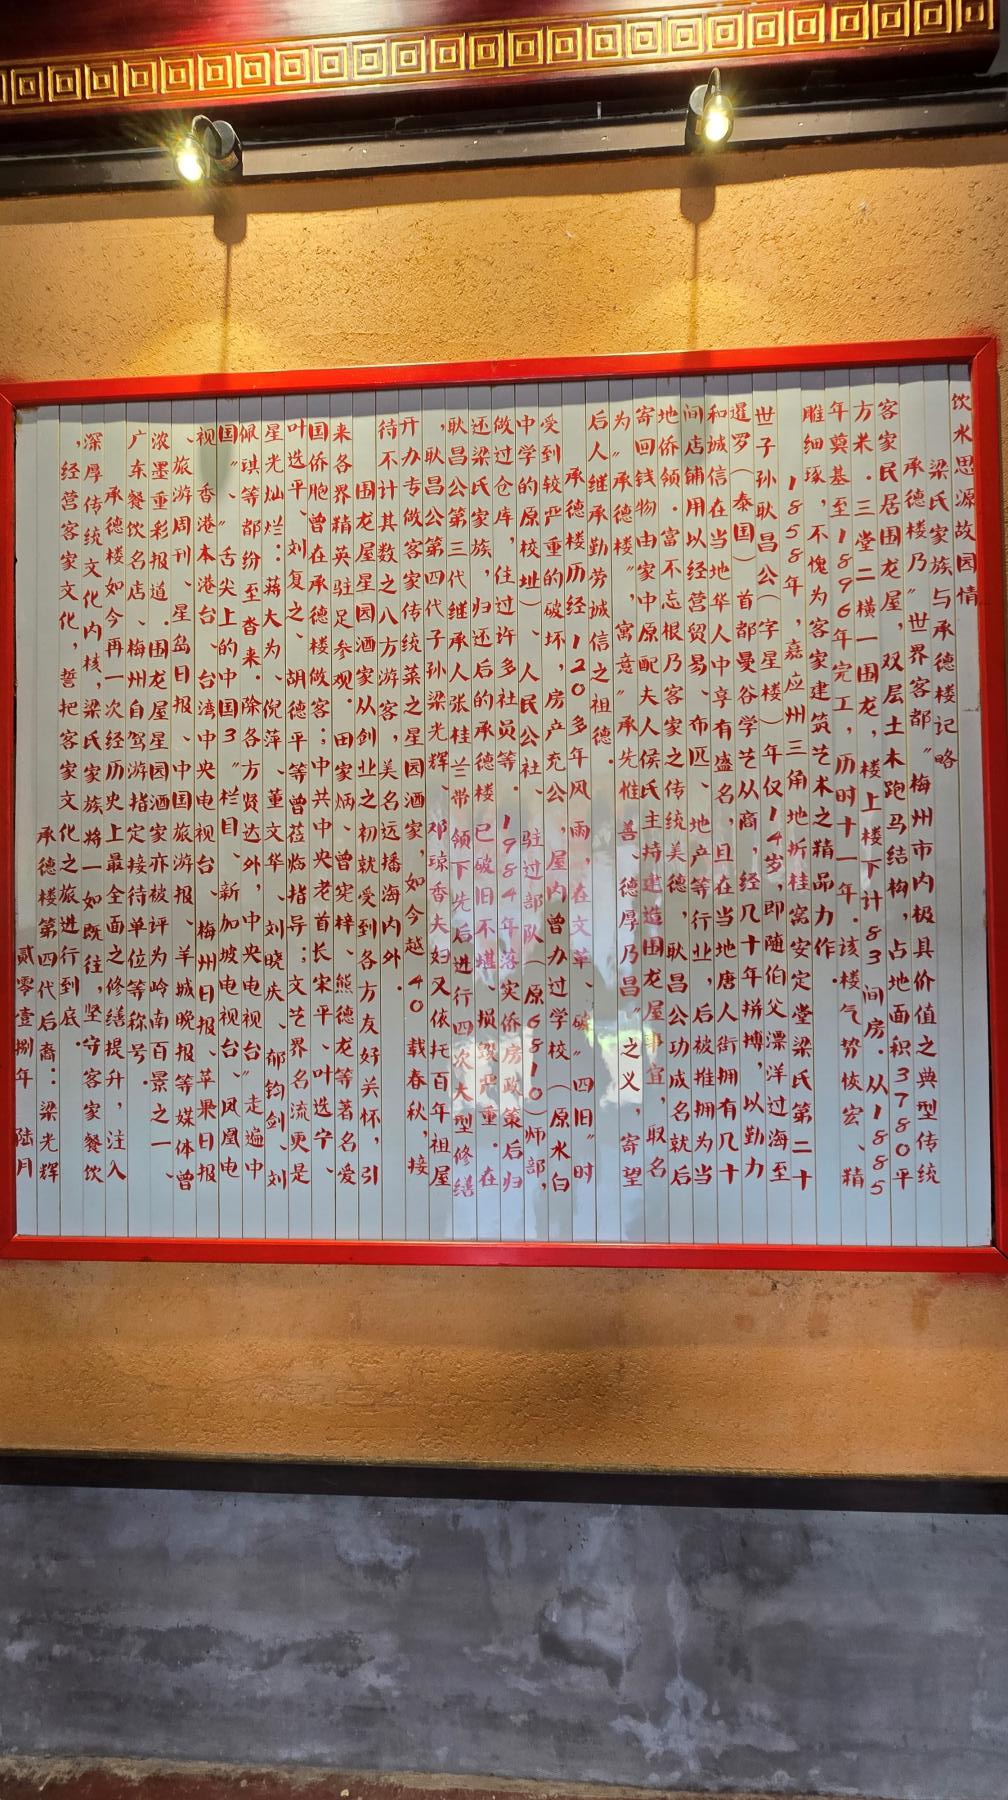 饮水思源故园情
梁氏家族与承德楼记略
承德楼乃“世界客都”梅州市内极具价值之典型传统
客家民居围龙屋，双层土木跑马结构，占地面积3780平
方米．三堂二横一围龙，楼上楼下计83间房．从1885
年奠基至1896年完工，历时十一年．该楼气势恢宏、精
雕细琢，不愧为客家建筑艺术之精品力作．
1858年，嘉应州三角地折桂窝安定堂梁氏第二十
世子孙耿昌公（字星楼）年仅14岁，即随伯父漂洋过海至
暹罗（泰国）首都曼谷学艺从商，经几十年拼搏，以勤力
和诚信在当地华人中享有盛名，且在当地唐人街拥有几十
间店铺用以经营贸易、布匹、地产等行业，后被推拥为当
地侨领．富不忘根乃客家之传统美德，耿昌公功成名就后
寄回钱物由家中原配夫人侯氏主持建造围龙屋事宜，取名
为“承德楼”，寓意“承先惟善、德厚乃昌”之义，寄望
后人继承勤劳诚信之祖德．
承德楼历经120多年风雨，在文革、破“四旧”时
受到较严重的破坏，房产充公，屋内曾办过学校（原水白
中学的原校址）、人民公社、驻过部队（原6810）师部，
做过仓库，住过许多社员等．1984年落实侨房政策后归
还梁氏家族，归还后的承德楼已破旧不堪，损毁严重．在
耿昌公第三代继承人张桂兰带领下先后进行四次大型修缮
，耿昌公第四代子孙梁光辉、邓琼香夫妇又依托百年祖屋
开办专做客家传统菜之星园酒家，如今越40载春秋，接
待不计其数之八方游客，美名远播海内外．
围龙屋星园酒家从创业之初就受到各方友好关怀，引
来各界精英驻足参观．田家炳、曾宪梓、熊德龙等著名爱
国侨胞曾在承德楼做客；中共中央老首长宋平、叶选宁、
叶选平、刘复之、胡德平等曾莅临指导；文艺界名流更是
星光灿烂：蒋大为、倪萍、董文华、刘晓庆、郁钧剑、刘
佩琪等都纷至沓来．除各方贤达外，中央电视台“走遍中
国”、“舌尖上的中国3”栏目、新加坡电视台、凤凰电
视、香港本港台、台湾中央电视台、梅州日报、苹果日报
、旅游周刊、星岛日报、中国旅游报、羊城晚报等媒体曾
浓墨重彩报道．围龙屋星园酒家亦被评为岭南百景之一、
广东餐饮名店、梅州自驾游指定接待单位等称号．
承德楼如今再一次经历史上最全面之修缮提升，注入
深厚传统文化内核，梁氏家族将一如既往，坚守客家餐饮
，经营客家文化，誓把客家文化之旅进行到底．
承德楼第四代后裔：梁光辉
贰零壹捌年 陆月